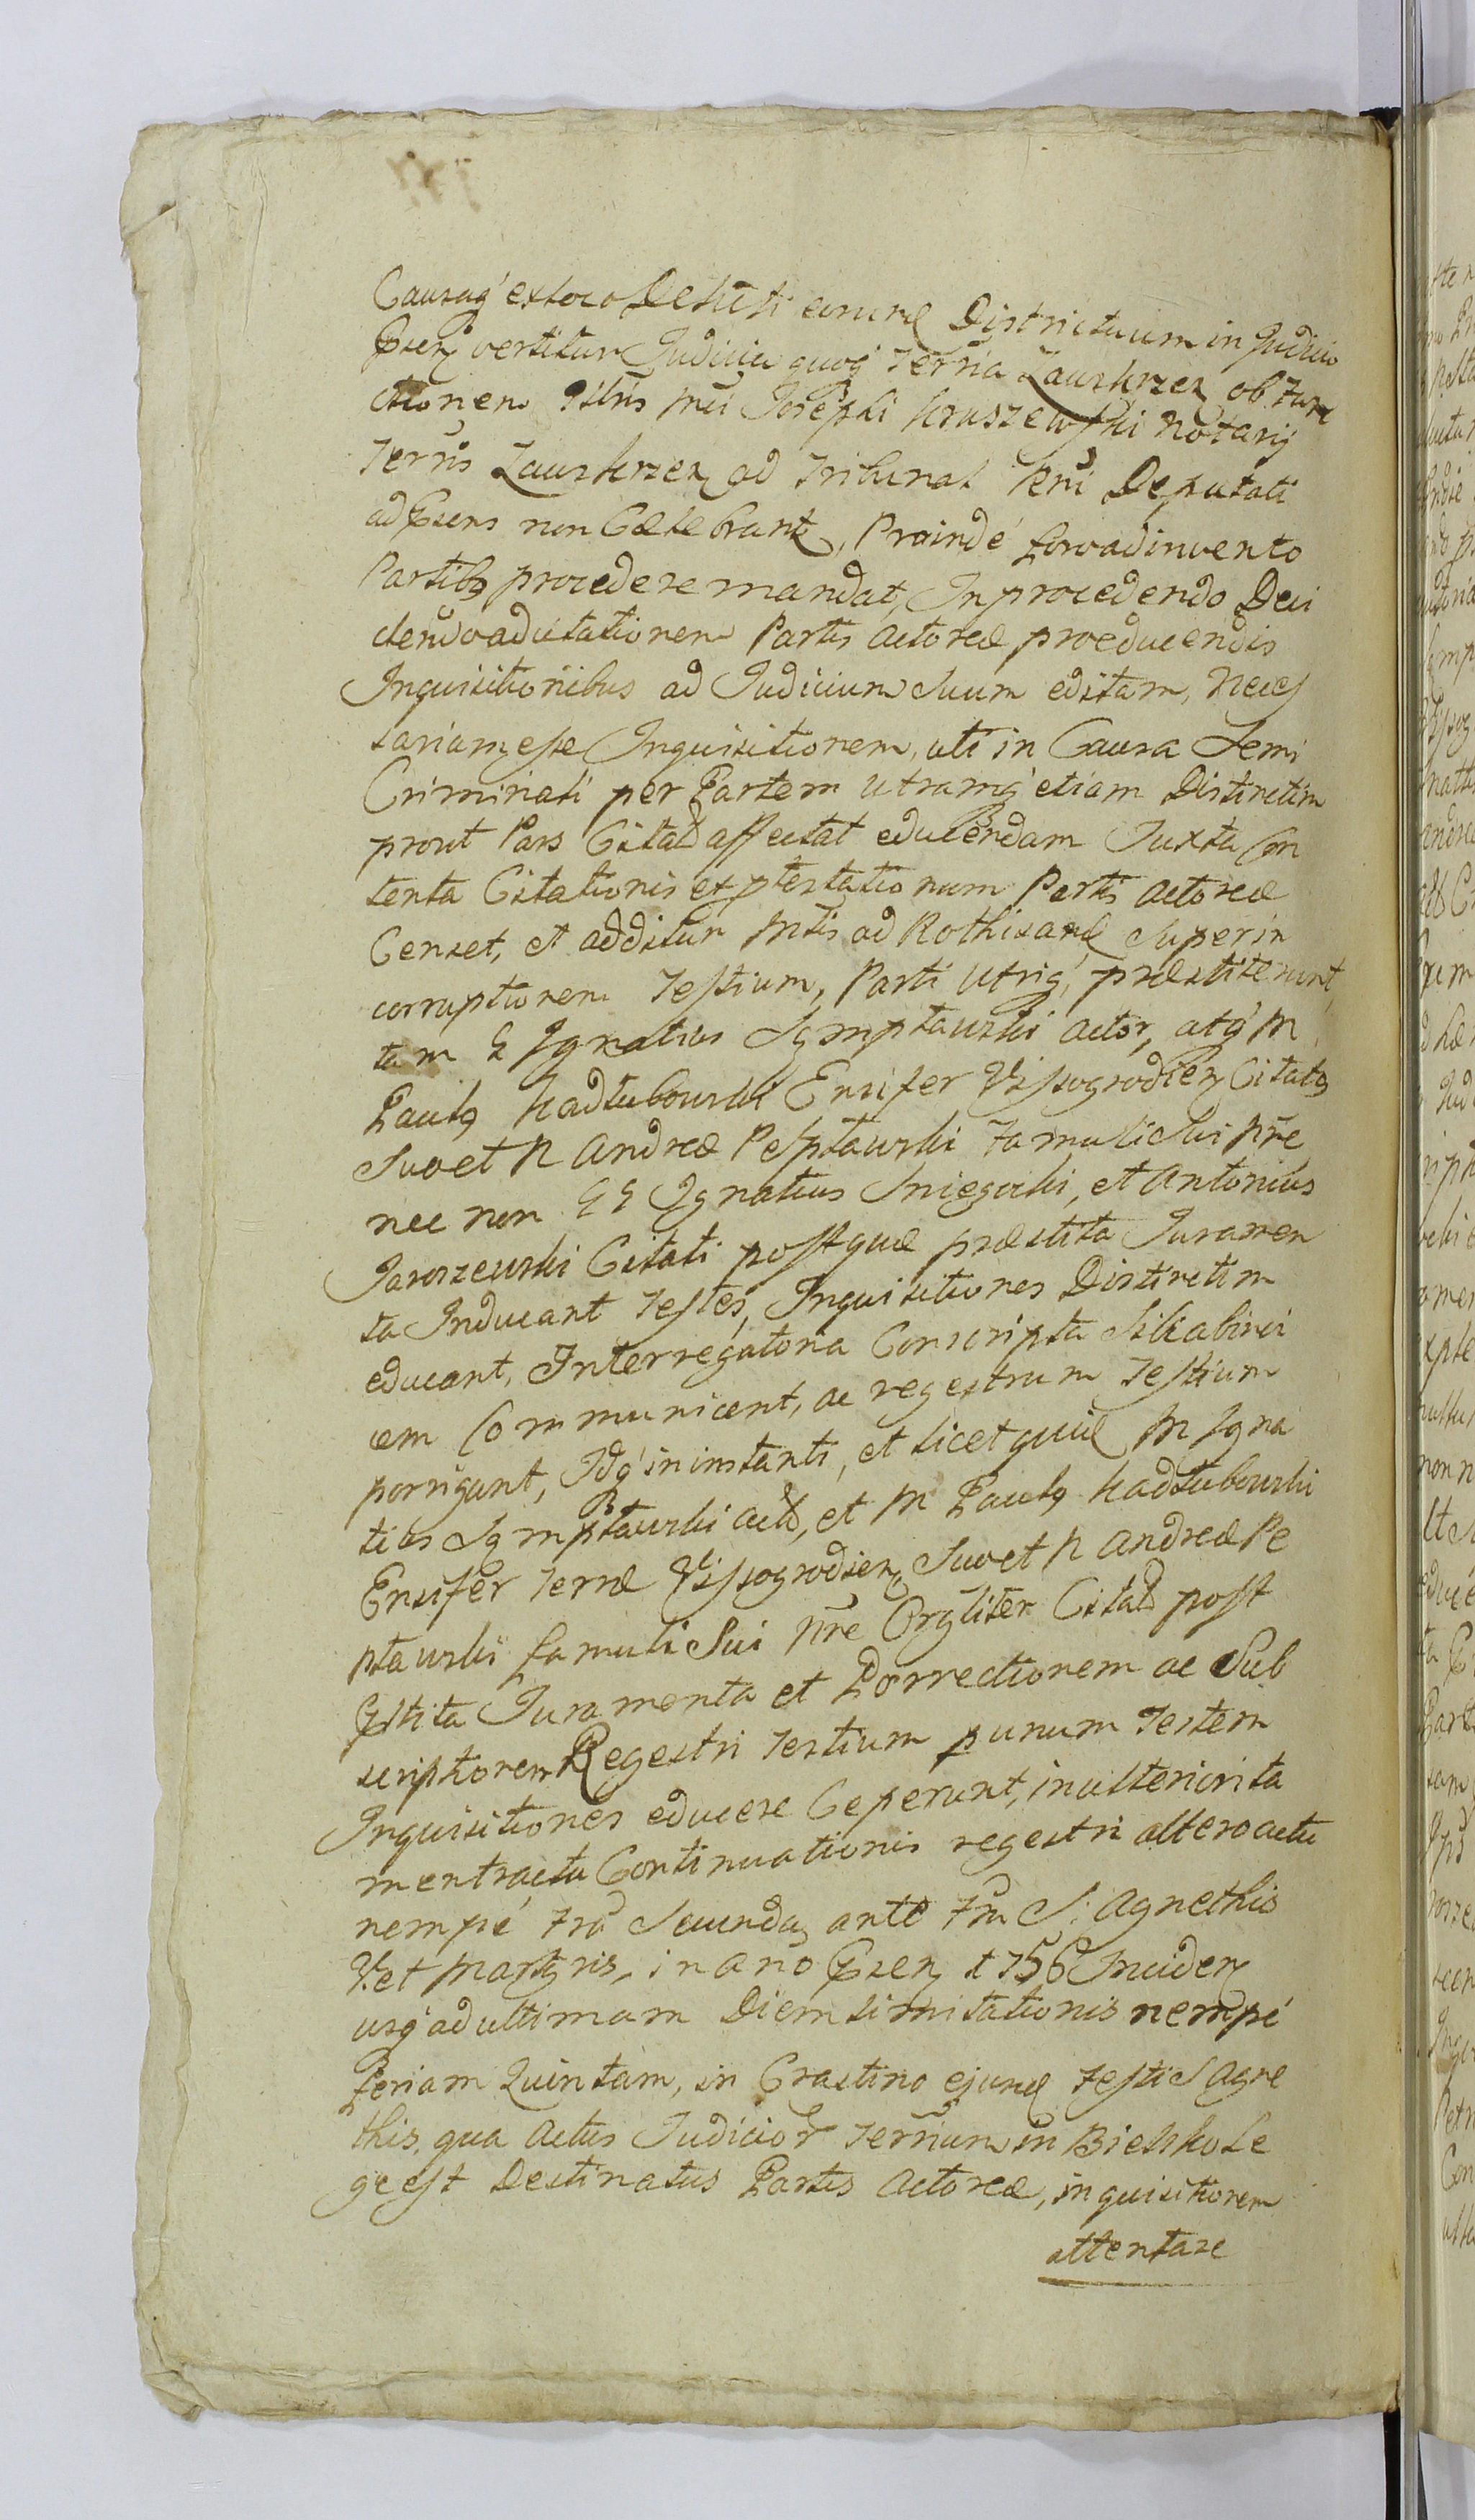 Causaq́ ex loco Delicti earund Districtuum in Judicio
Pnsenz vertitur Judicia quoq́ Terria Zawskrzen ob Fun
ctionem Illris Mci Josephi Kruszewski Notarij
Terris Zawskrzen ad Tribunal Rni Deputati
ad Psens non Celebrantz, Proindé foro adinvento
Partibꝯ procedere mandat, In procedendo Deci
dendo aducitationem Partis Actoreæ pro educendis
Inquisitionibus ad Judicium Suum editam, Neces
sariam esse Inquisitionem, uti in Causa Semi
Criminali per Partem utramq́ etiam Distinctim
prout Pars Citata affectat educendam Juxta Con
tenta Citationis et ptestationum Partis Actoreæ
Censet, et additur Mtis ad Rothisand Super in
corruptionem Testium, Parti Utriq́, præstiterunt
tam G Ignatius Symptawski Actor, atq́ M
Paulꝯ Kadlubowski Ensifer Vissogrodien Citatꝯ
Suo et N Andreæ Peptawski Famuli Sui Nre
nec non GG Ignatius Sniegocki, et Antonius
Jaroszewski Citati postquæ præstita Juramen
ta Inducant Testes, Inquisitiones Distinctim
educant, Interregatoria Conscripta Sibi abinvi
cem Communicent, ac regestrum Testium
porrigant, Idq́ in instanti, et licet quid M Igna
tius Symptawski Actor, et M Paulꝯ Kadlubowski
Ensifer Terræ Vissogrodien Suo et N Andreæ Pe
ptawski famuli Sui Nre Orgliter Citatꝯ post
Pstita Juramenta et Porrectionem ac Sub
scriptionem Regestri Testium p unum Testem
Inquisitiones educere Ceperunt, in ulteriori ta
men tractu Continuationis regestri altero actu
nempé Fria Secunda ante Fm S. Agnethis
V. et Martyris, in Ano Psenz 1756 Inciden
usq́ ad ultimam Diem limitationis nempé
feriam Quintam, in Crastino ejusd Festi S Agne
this, qua Actus Judicior Terrium in Bielsko Le
ge est Destinatus Partis Actoreæ, inquisitionem
attentare